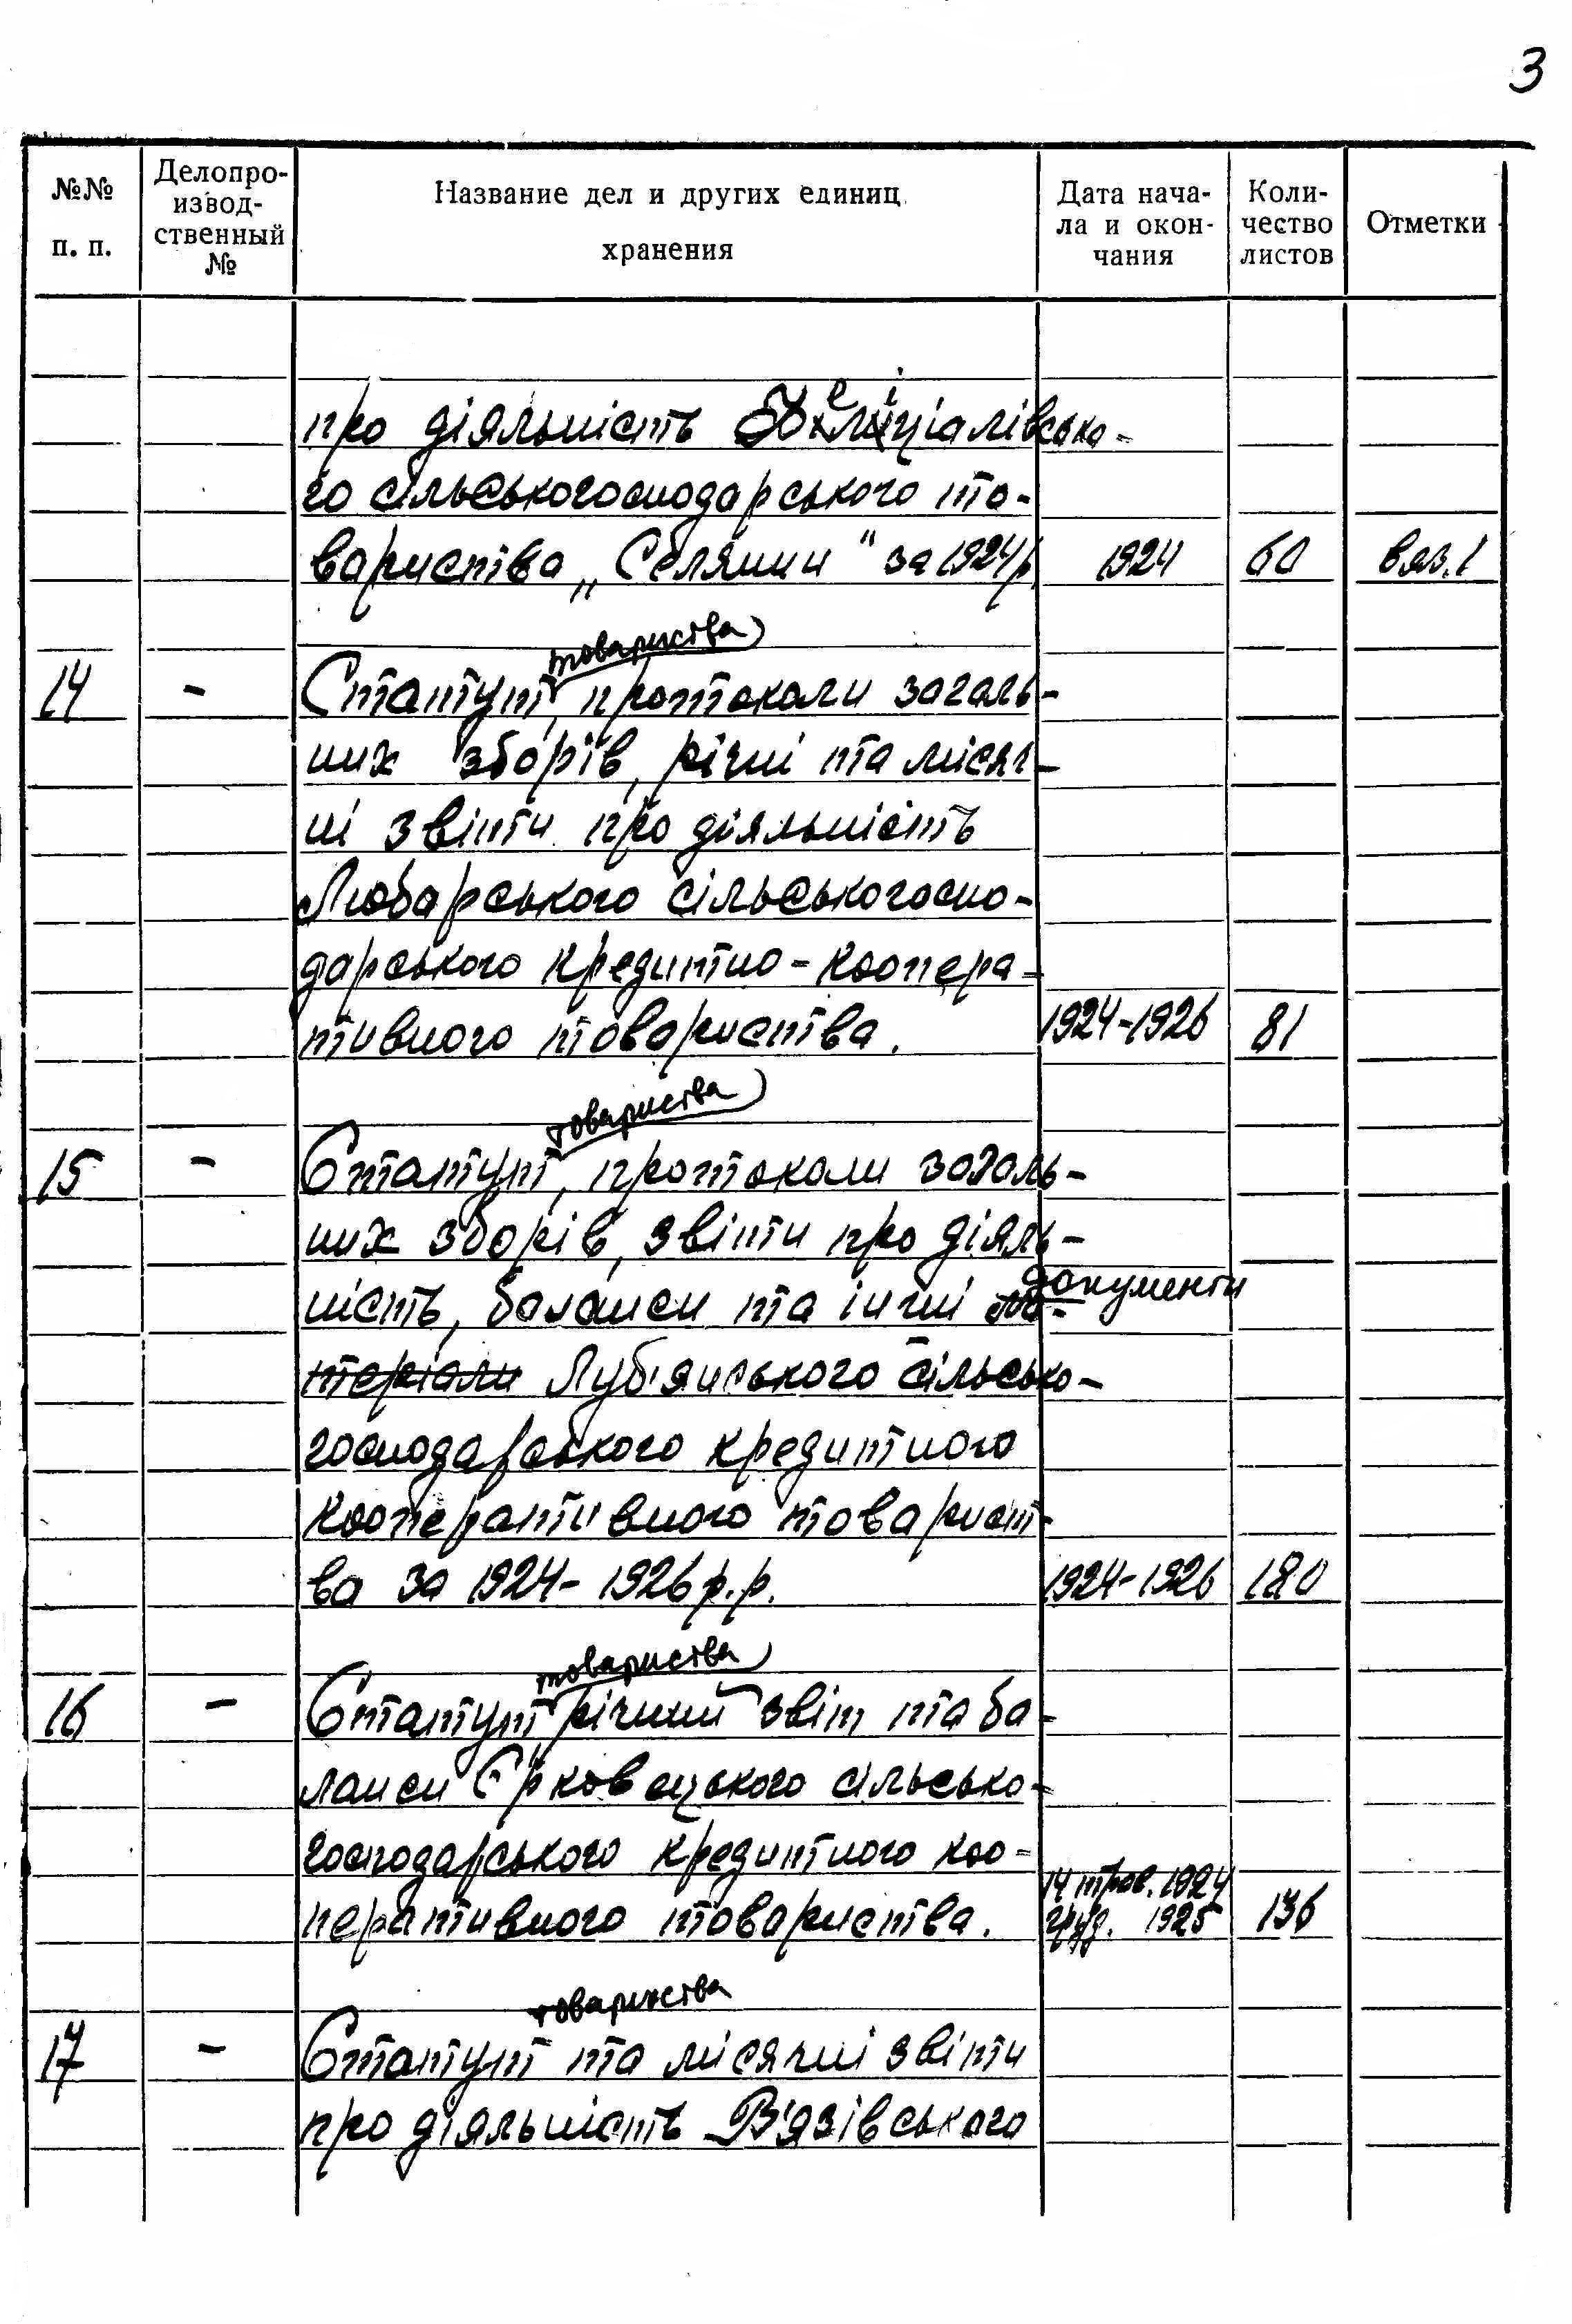 3
№№ п. п.
Делопро-
извод-
ственный
№
Название дел и других единиц
хранения
Дата нача-
ла и окон-
чания
Коли-
чество
листов
Отметки
про діяльність
го сільськогосподарського то-
вариства „Селянин" за 1924р 1924 60 вяз.1
товариства
14 - Статут, протоколи загаль-
них зборів, річні та місяч-
ні звіти про діяльність
Любарського сільськогоспо-
дарського кредитно-коопера-
тивного товариства. 1924-1926 81
товариства
15 - Статут, протоколи загаль-
них зборів, звіти про діяль-
ність, баланси та інші ма- документи
теріали Луб'янського сільсько-
господарського кредитного
кооперативного товарист-
ва за 1924-1926 р.р. 1924-1926 180
товариства
16 - Статут, річний звіт та ба-
ланси Єрковецького сільсько-
господарського кредитного коо-
перативного товариства. 14 трав. 1924 груд. 1925 136
товариства
17 - Статут та місячні звіти
про діяльність В'язівського